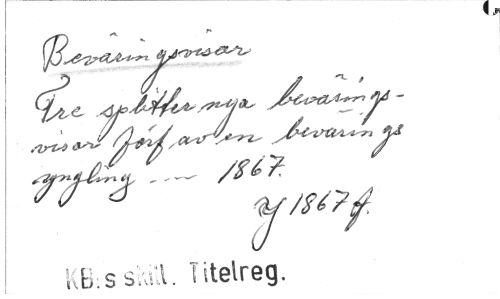 Beväringsvisor
Tre splitter nya bevärings-
visor förf av en bevärings
yngling .... 1867.
Y 1867 f.
KB:s skill. Titelreg.